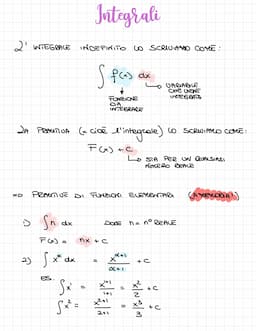 Integrali
L' INTEGRALE INDEFINITO LO SCRIVIAMO COME:
∫ f(x) dx
↳ VARIABILE
↳ FUNZIONE
DA
INTEGRARE
LA PRIMITIVA (= cioè l'integrale) LO SCRIVIAMO COME:
F(x) + c
↳ STA PER UN QUALSIASI
NUMERO REALE
=> PRIMITIVE DI FUNZIONI ELEMENTARI
1) ∫ n dx DOVE n = n° REALE
F(x) = nx + c
2) ∫ x^α dx = x^(α+1) / (α+1) + C
ES. ∫ x¹ = x^(1+1) / (1+1) = x² / 2 + C
∫ x² = x^(2+1) / (2+1) = x³ / 3 + C